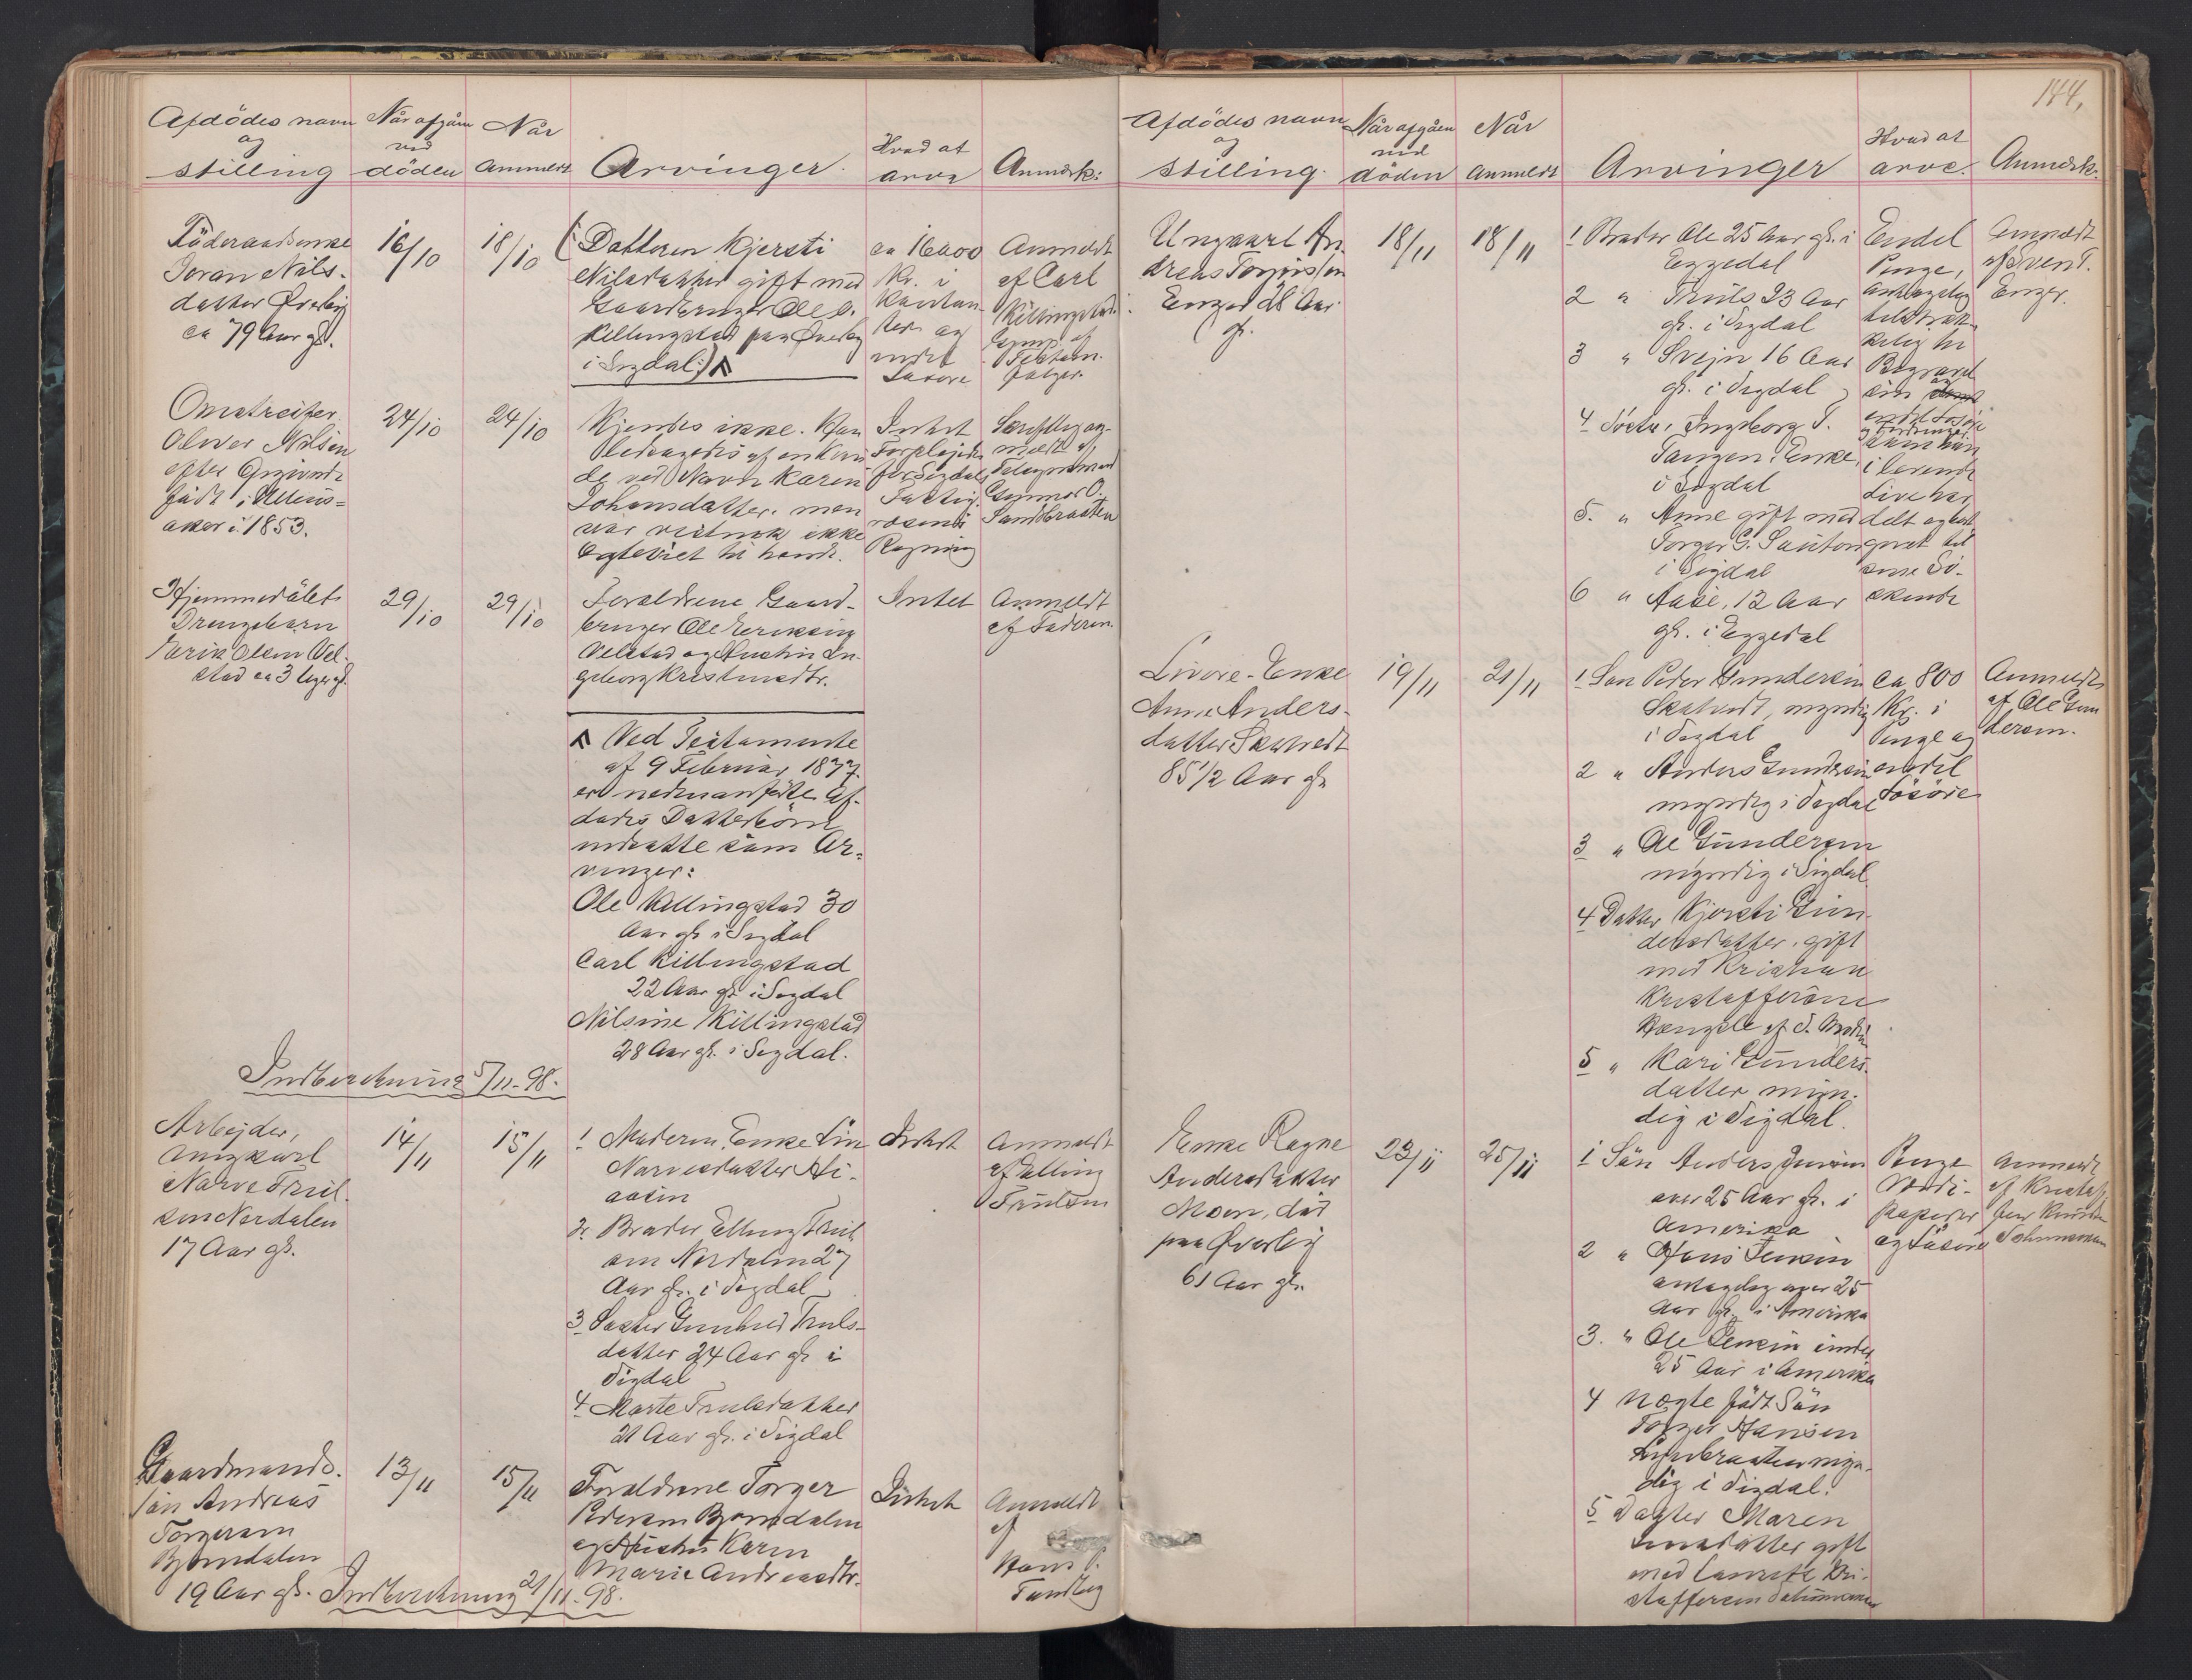 Afdödes navn
og
stilling
Når afgåen
ved
döden
Når
anmeldt
Arvinger.
Hvad at
arve
Anmærk:
Föderaadsenke
Joran Nils-
datter Överby
ca 79 Aar gl.
16/10
18/10
(: Datteren Kjersti
Nilsdatter gift med
Gaardbruger Ole O.
Killingstad paa Överby
i Sigdal :)
ca 16000
Kr. i
Kontan-
ter og
endel
Lösöre
Anmeldt
af Carl
Killingstad.
Testam.
fölger.
Omstreifer
Oliver Nilsen
efter Opgivende
født i Ullens-
aker i 1853.
24/10
24/10
Kjendes ikke. Han
ledsagedes af en Kvin
de ved Navn Karen
Johansdatter. men
var vistnok ikke
Egteviet til hende.
Intet
Forplejedes
for Sigdals
Fattig-
væsens
Regning
Skriftlig an-
meldt af
Gunnar O.
Sandbraaten
Hjemmedöbt
Drengebarn
Erik Olsen Vel-
stad ca 3 Uger gl.
29/10
29/10
Forældrene Gaard-
bruger Ole Eriksen
Velstad og Hustru In-
geborg Kristinedtr.
Intet
Anmeldt
af Faderen.
Ved Testamente
af 9 Februar 1877
er nedenanførte Af-
dødes Datterbørn
indsatte som Ar-
vinger:
Ole Killingstad 30
Aar gl. i Sigdal
Carl Killingstad
22 Aar gl. i Sigdal
Nilsine Killingstad
28 Aar gl. i Sigdal.
Indberetning 5/11-98.
Arbejder,
Ungkarl
Narve Truls-
sen Nordalen
17 Aar gl.
14/11
15/11
1 Moderen, Enke Liv
Narvesdatter
2. Broder Elling Truls
sen Nordalen 27
Aar gl. i Sigdal
3 Søster Gunhild Truls-
datter 24 Aar gl. i
Sigdal
4 Marte Trulsdatter
21 Aar gl. i Sigdal
Intet
Anmeldt
af Elling
Trulsen
Gaardmands-
søn Andreas
Torgersen
Bjøredalen
19 Aar gl.
13/11
15/11
Forældrene Torger
Pedersen Bjøredalen
og Hustru Karen
Marie Andreasdtr.
Intet
Anmeldt
af
Hans P.
Indberetning 21/11-98.
144.
Afdödes navn
og
stilling.
Når afgåen
ved
döden
Når
anmeldt
Arvinger
Hvad at
arve.
Anmærk.
Ungkarl An-
dreas
Enger 28 Aar
gl.
18/11
18/11
1 Broder Ole 25 Aar gl. i
Eggedal
2 " Truls 23 Aar
gl. i Sigdal
3 " Svejn 16 Aar
gl. i Sigdal
4 Søster, Ingeborg T.
Tangen, Enke,
i Sigdal
5. " Anne gift med
Torger G.
i Sigdal
6 " Aase, 12 Aar
gl. i Eggedal
Endel
Penge,
antagelig
tilstræk-
kelig til
Begravel
sen
og
endel Løsøre
som han
i levende
Live har
delt og
sine Sö-
skende
Anmeldt
af Svend T.
Enger.
Enke
Anne Anders-
datter Skatvedt
85 1/2 Aar gl.
19/11
21/11
1 Søn Peder Gundersen
Skatvedt, myndig
i Sigdal
2 " Anders Gundersen
myndig i Sigdal
3 " Ole Gundersen
myndig i Sigdal
4 Datter Kjersti Gun-
dersdatter, gift
med Kristian
Kristoffersen
5 " Kari Gunders-
datter myn-
dig i Sigdal.
ca 800
Kr. i
Penge og
endel
Lösöre
Anmeldt
af Ole Gun
dersen.
Enke Ragne
Andersdatter
Moen, død
paa Överby
61 Aar gl.
23/11
25/11
1 Søn Anders Jensen
over 25 Aar gl. i
Amerika
2 " Hans Jensen
antagelig over 25
Aar gl. i Amerika
3. " Ole Jensen under
25 Aar i Amerika
4 Uægte født Søn
Torger Hansen
myn-
dig i Sigdal.
5 Datter Maren
Jensdatter gift
med Laurits Kri-
stoffersen
Penge
Værdi-
papirer
og Løsøre
Anmeldt
af Kristof
fer